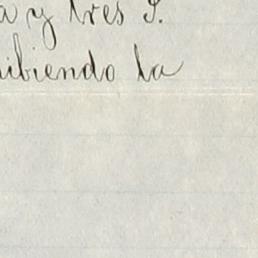 a y tres S.
ibiendo la